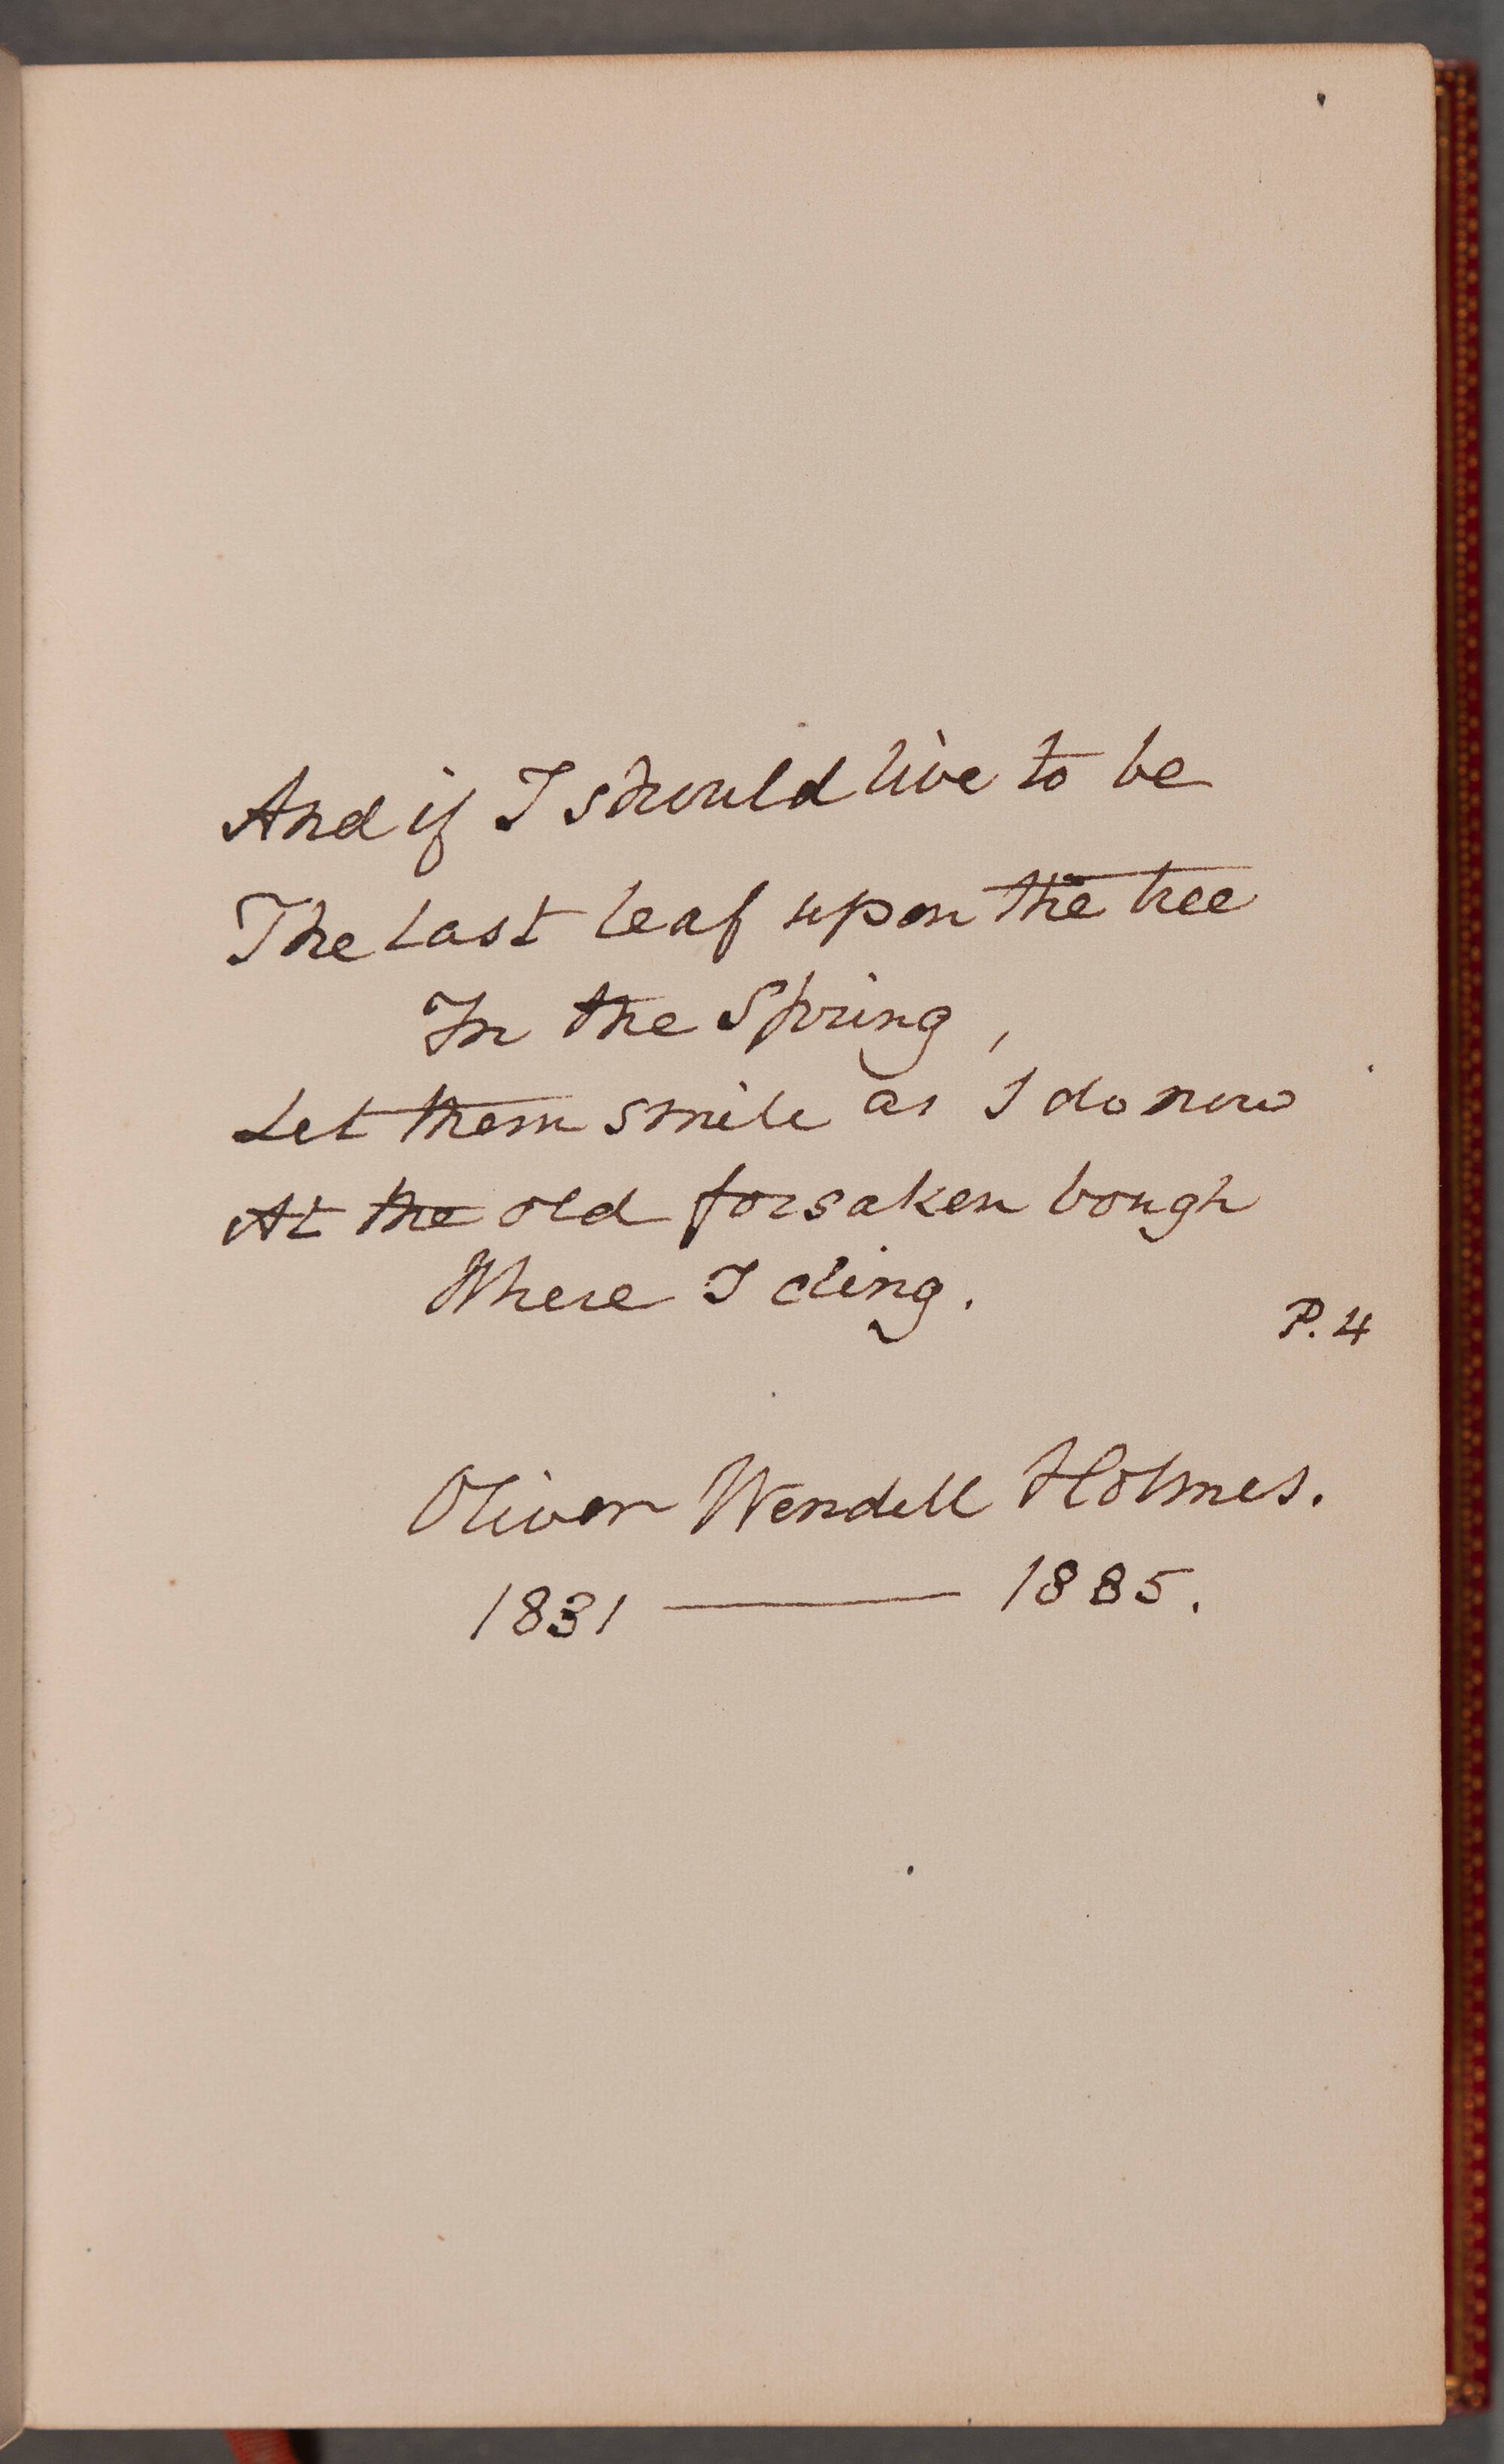 And if I should live to be
The last leaf upon the tree
In the Spring,
Let them smile as I do now
At the old forsaken bough
Where I cling.
P. 4
Oliver Wendell Holmes.
1831 — 1885.